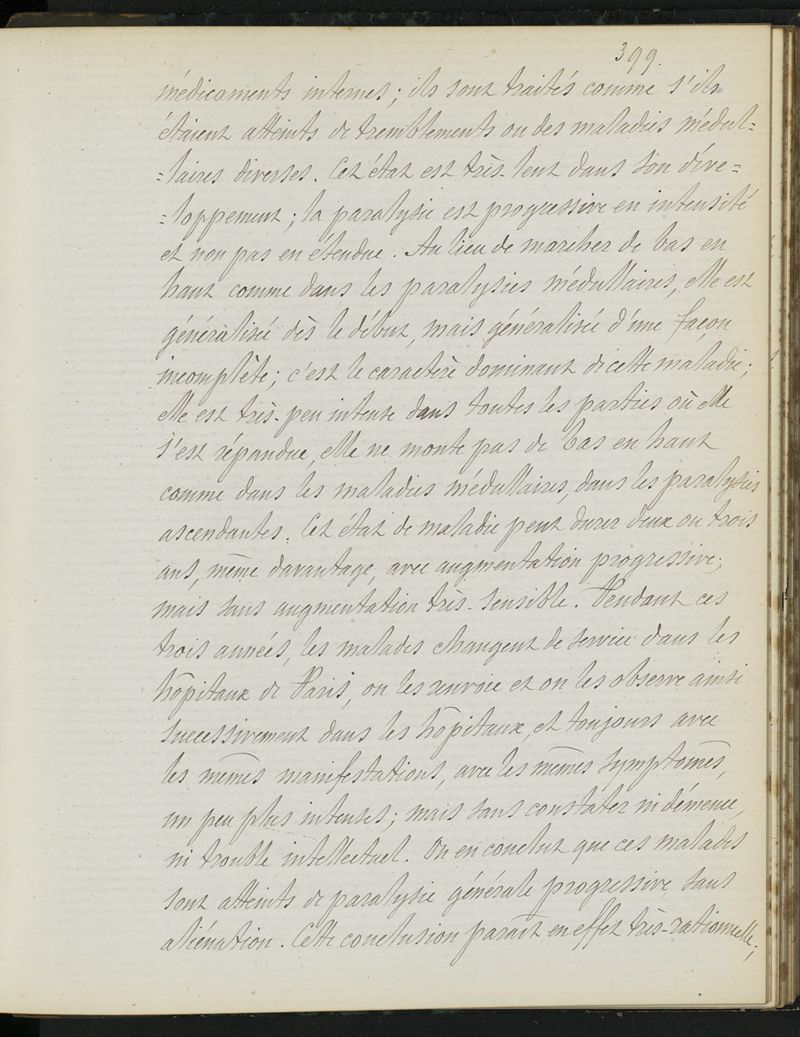 399.
médicaments internes ; ils sont traités comme s'ils
étaient atteints de tremblements ou des maladies médul=
=laires diverses. Cet état est très lent dans son déve=
=loppement ; la paralysie est progressive en intensité
et non pas en étendue. Au lieu de marcher de bas en
haut comme dans les paralysies médullaires, elle est
généralisée dès le début, mais généralisée d'une façon
incomplète ; c'est le caractère dominant de cette maladie ;
elle est très-peu intense dans toutes les parties où elle
s'est répandue, elle ne monte pas de bas en haut
comme dans les maladies médullaires, dans les paralysies
ascendantes. Cet état de maladie peut durer deux ou trois
ans, même davantage, avec augmentation progressive ;
mais sans augmentation très-sensible. Pendant ces
trois années, les malades changent de service dans les
hôpitaux de Paris, on les renvoie et on les observe ainsi
successivement dans les hôpitaux, et toujours avec
les mêmes manifestations, avec les mêmes symptomes,
un peu plus intenses ; mais sans constater ni démence,
ni trouble intellectuel. On en conclut que ces malades
sont atteints de paralysie générale progressive sans
aliénation. Cette conclusion paraît en effet très-rationnelle ;